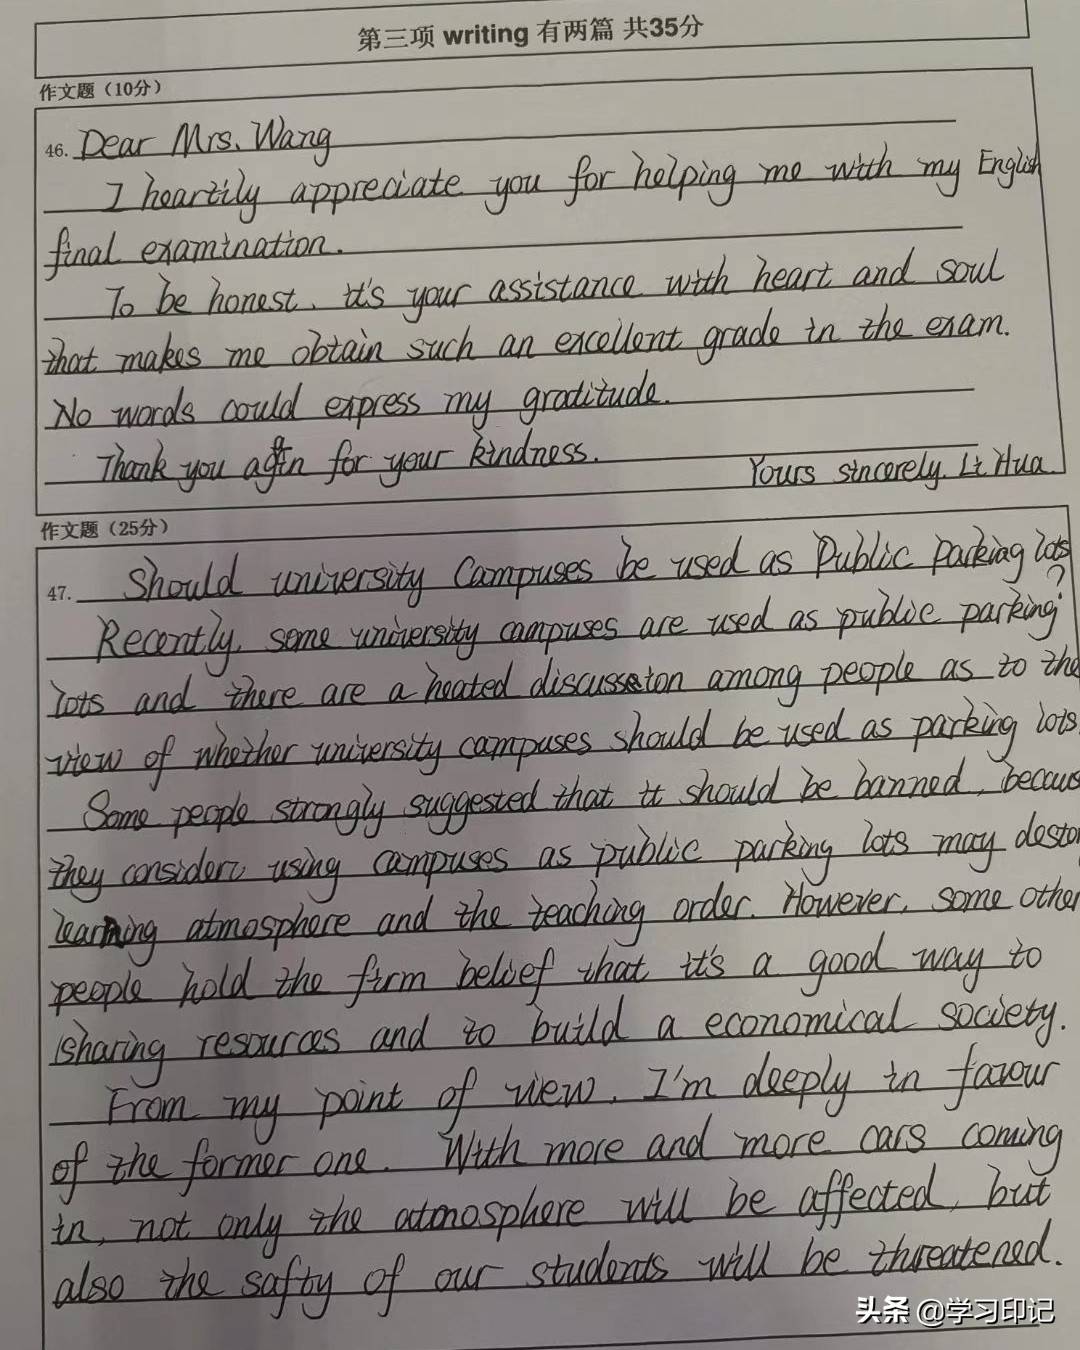 第三项 writing 有两篇 共35分
作文题（10分）
46. Dear Mrs. Wang
I heartily appreciate you for helping me with my English
final examination.
To be honest, it's your assistance with heart and soul
that makes me obtain such an excellent grade in the exam.
No words could express my gratitude.
Thank you again for your kindness.
Yours sincerely. Li Hua.
作文题（25分）
47. Should university Campuses be used as Public Parking lots
?
Recently, some university campuses are used as public parking
lots and there are a heated discussion among people as to the
view of whether university campuses should be used as parking lots.
Some people strongly suggested that it should be banned, becaus
they consider using campuses as public parking lots may destor
learning atmosphere and the teaching order. However, some other
people hold the firm belief that it's a good way to
sharing resources and to build a economical society.
From my point of view, I'm deeply in favour
of the former one. With more and more cars coming
in, not only the atmosphere will be affected, but
also the safty of our students will be threatened.
头条 @学习印记